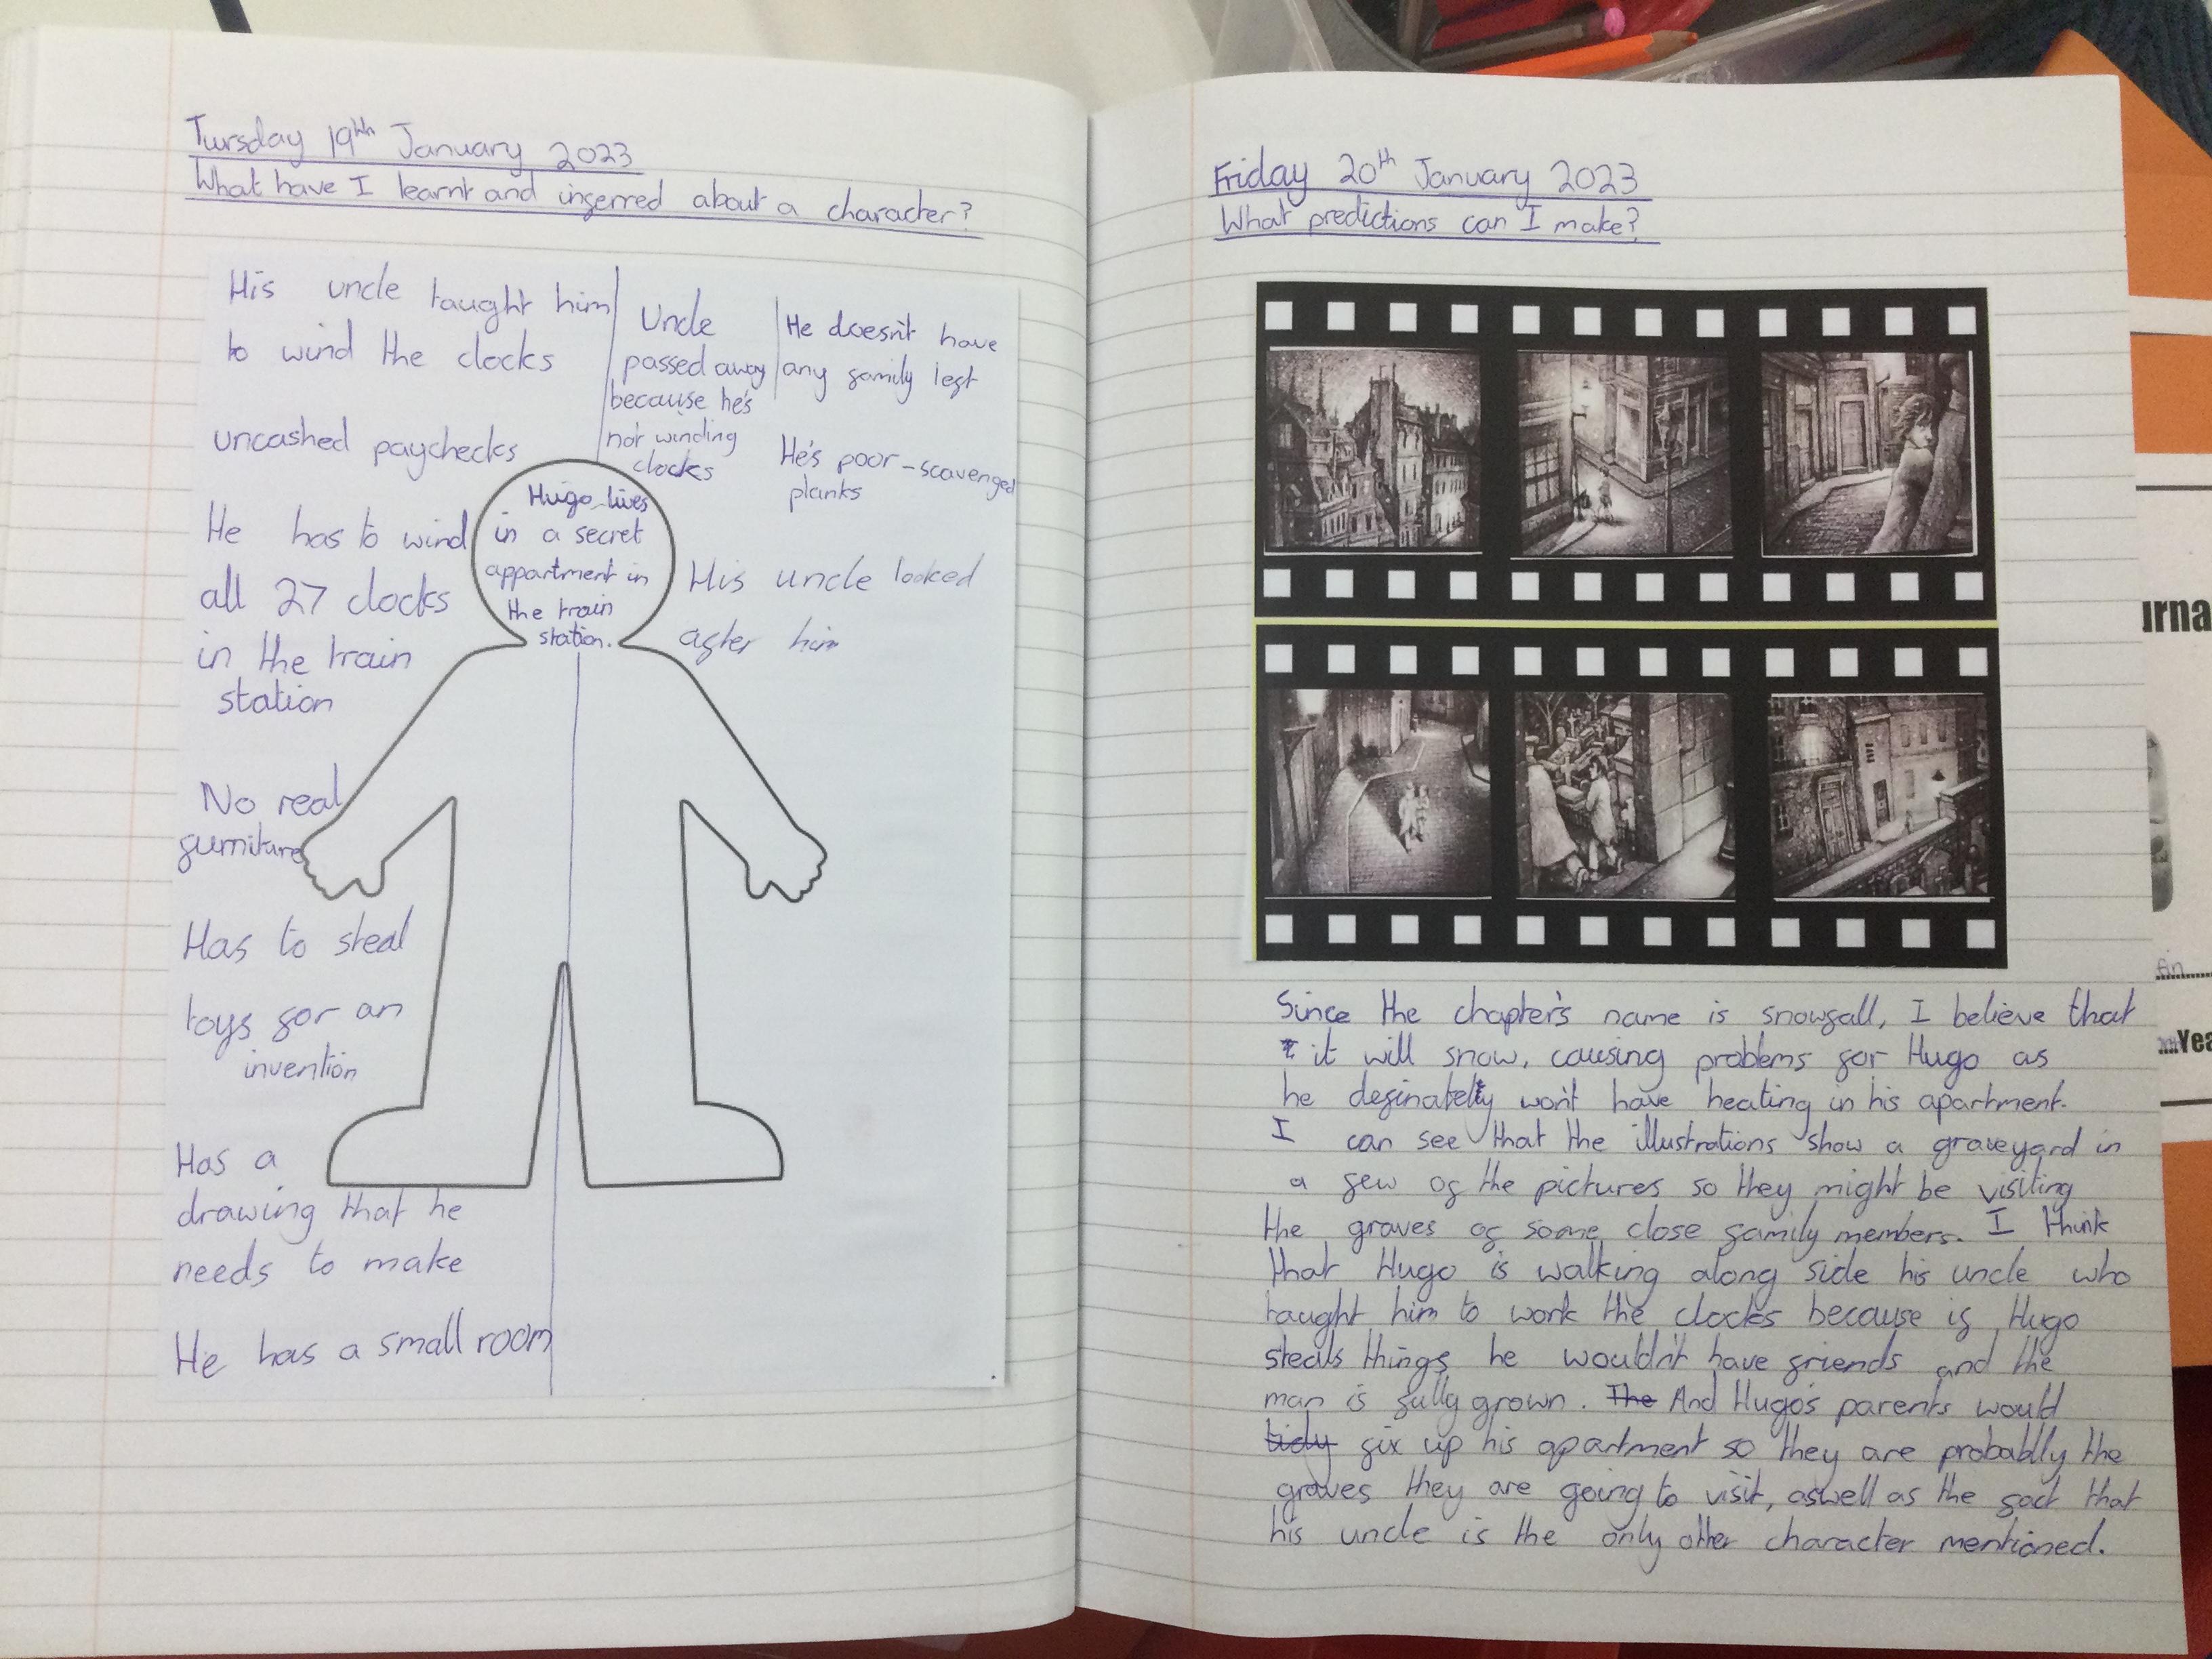 Tursday 19th January 2023
What have I learnt and inferred about a character?
His uncle taught him
to wind the clocks
uncashed paychecks
He has to wind
all 27 clocks
in the train
station
No real
furniture
Has to steal
toys for an
invention
Has a
drawing that he
needs to make
He has a small room
Uncle
passed away
because he's
not winding
clocks
He doesn't have
any family left
He's poor - scavenged
planks
Hugo lives
in a secret
appartment in
the train
station.
His uncle looked
after him
Friday 20th January 2023
What predictions can I make?
Since the chapter's name is snowfall, I believe that
it will snow, causing problems for Hugo as
he definately won't have heating in his apartment.
I can see that the illustrations show a graveyard in
a few of the pictures so they might be visiting
the graves of some close family members. I think
that Hugo is walking along side his uncle who
taught him to work the clocks because if Hugo
steals things he wouldn't have friends and the
man is fully grown. The And Hugo's parents would
tidy fix up his apartment so they are probablly the
graves they are going to visit, aswell as the fact that
his uncle is the only other character mentioned.
urna
An
Yea